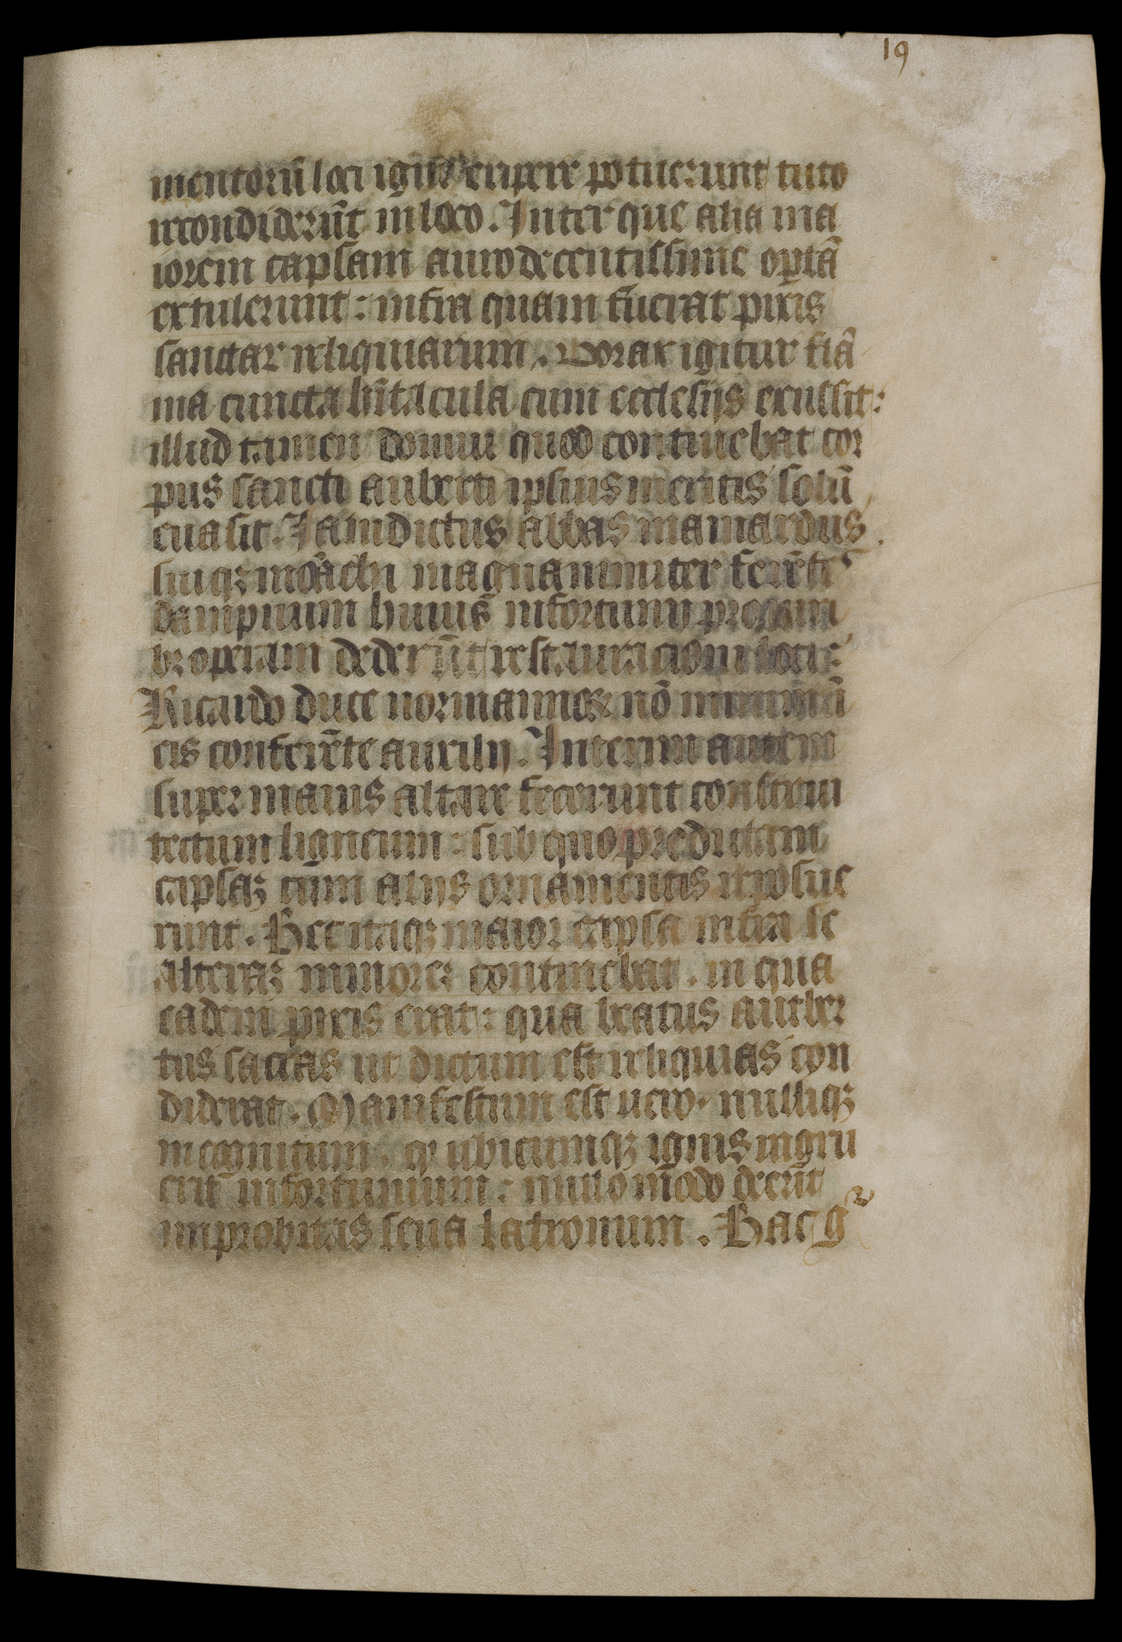 19
mentorū loci igni eripere potuerunt tuto
recondiderūt in loco. Inter que alia ma
iorem capsam auro decentissime optā
extulerunt: infra quam fuerat pixis
sanctar reliquiarum. Vorax igitur flā
ma cuncta hītacula cum ecclesijs exussit:
illud tamen domui quod continebat cor
pus sancti auberti ipsius meritis solū
euasit. Jamdictus abbas mainardus
suiqꝫ moāchi magnanimiter ferēte
dampnum huius infortunij
bꝫ operam dederūt restauracioni loci:
Ricardo duce normannoꝝ nō minimā
eis conferēte auxilij. Interim autem
super maius altare fecerunt construi
tectum ligneum: sub quo predictam
capsaꝫ cum alijs ornamentis reposue
runt. Hec itaqꝫ maior capsa infra se
alteraꝫ minoreꝫ continebat. in qua
eadem pixis erat: qua beatus autber
tus sacras ut dictum est reliquias con
diderat. Manifestum est uero. nulliqꝫ
incognitum. qꝫ ubicumqꝫ ignis ingru
erit infortunium: nullo modo deerit
improbitas seua latronum. Hac gͣ